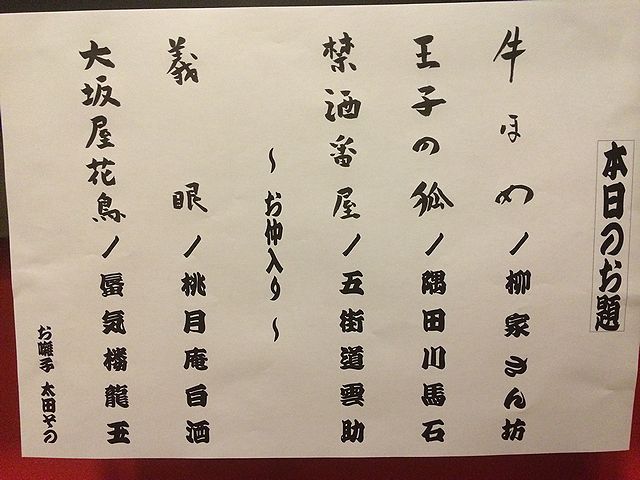 本日のお題
牛ほめ／柳家さん坊
王子の狐／隅田川馬石
禁酒番屋／五街道雲助
～お仲入り～
義眼／桃月庵白酒
大坂屋花鳥／蜃気楼龍玉
お囃子 太田その